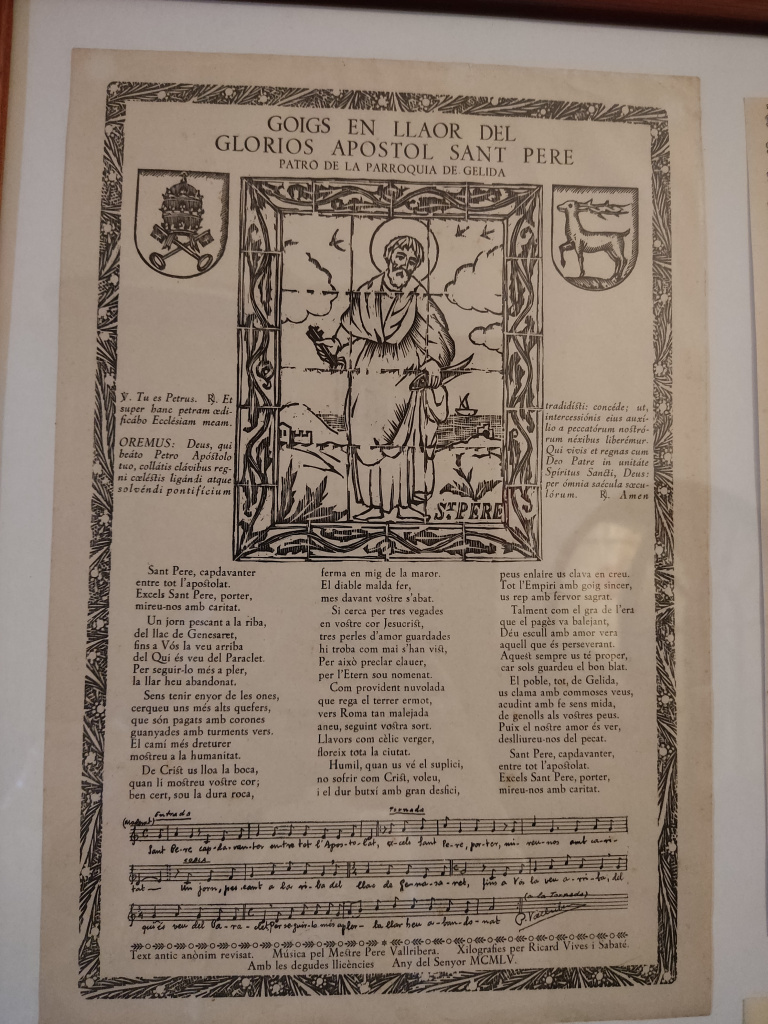 GOIGS EN LLAOR DEL
GLORIOS APOSTOL SANT PERE
PATRÓ DE LA PARROQUIA DE GELIDA
℣. Tu es Petrus. ℟. Et
super hanc petram ædi-
ficábo Ecclésiam meam.
OREMUS: Deus, qui
beáto Petro Apóstolo
tuo, collátis clávibus reg-
ni cœléstis ligándi atque
solvéndi pontifícium
tradidísti: concéde; ut,
intercessiónis eius auxí-
lio a peccatórum nostró-
rum néxibus liberémur.
Qui vivis et regnas cum
Deo Patre in unitáte
Spíritus Sancti, Deus:
per ómnia saécula sæcu-
lórum. ℟. Amen
ST PERE
Sant Pere, capdavanter
entre tot l'apostolat.
Excels Sant Pere, porter,
mireu-nos amb caritat.
Un jorn pescant a la riba,
del llac de Genesaret,
fins a Vós la veu arriba
del Qui és veu del Paraclet.
Per seguir-lo més a pler,
la llar heu abandonat.
Sens tenir enyor de les ones,
cerqueu uns més alts quefers,
que són pagats amb corones
guanyades amb turments vers.
El camí més dreturer
mostreu a la humanitat.
De Crist us lloa la boca,
quan li mostreu vostre cor;
ben cert, sou la dura roca,
ferma en mig de la maror.
El diable malda fer,
mes davant vostre s'abat.
Si cerca per tres vegades
en vostre cor Jesucrist,
tres perles d'amor guardades
hi troba com mai s'han vist,
Per això preclar clauer,
per l'Etern sou nomenat.
Com provident nuvolada
que rega el terrer ermot,
vers Roma tan malejada
aneu, seguint vostra sort.
Llavors com cèlic verger,
floreix tota la ciutat.
Humil, quan us vé el suplici,
no sofrir com Crist, voleu,
i el dur butxí amb gran desfici,
peus enlaire us clava en creu.
Tot l'Empiri amb goig sincer,
us rep amb fervor sagrat.
Talment com el gra de l'era
que el pagès va balejant,
Déu escull amb amor vera
aquell que és perseverant.
Aquest sempre us té proper,
car sols guardeu el bon blat.
El poble, tot, de Gelida,
us clama amb commoses veus,
acudint amb fe sens mida,
de genolls als vostres peus.
Puix el nostre amor és ver,
deslliureu-nos del pecat.
Sant Pere, capdavanter,
entre tot l'apostolat.
Excels Sant Pere, porter,
mireu-nos amb caritat.
Entrada
Tornada
Sant Pe-re cap-da-van-ter entre tot l'Apos-to-lat, ex-cels Sant Pe-re, por-ter, mi-reu-nos amb ca-ri-
tat Un jorn, pes-cant a la ri-ba del llac de Ge-ne-sa-ret, fins a Vós la veu a-rri-ba, del
qui és veu del Pa-ra-clet Per seguir-lo més a pler la llar heu a-ban-do-nat
(a la Tornada)
Text antic anònim revisat. Música pel Mestre Pere Vallribera. Xilografies per Ricard Vives i Sabaté.
Amb les degudes llicències Any del Senyor MCMLV.